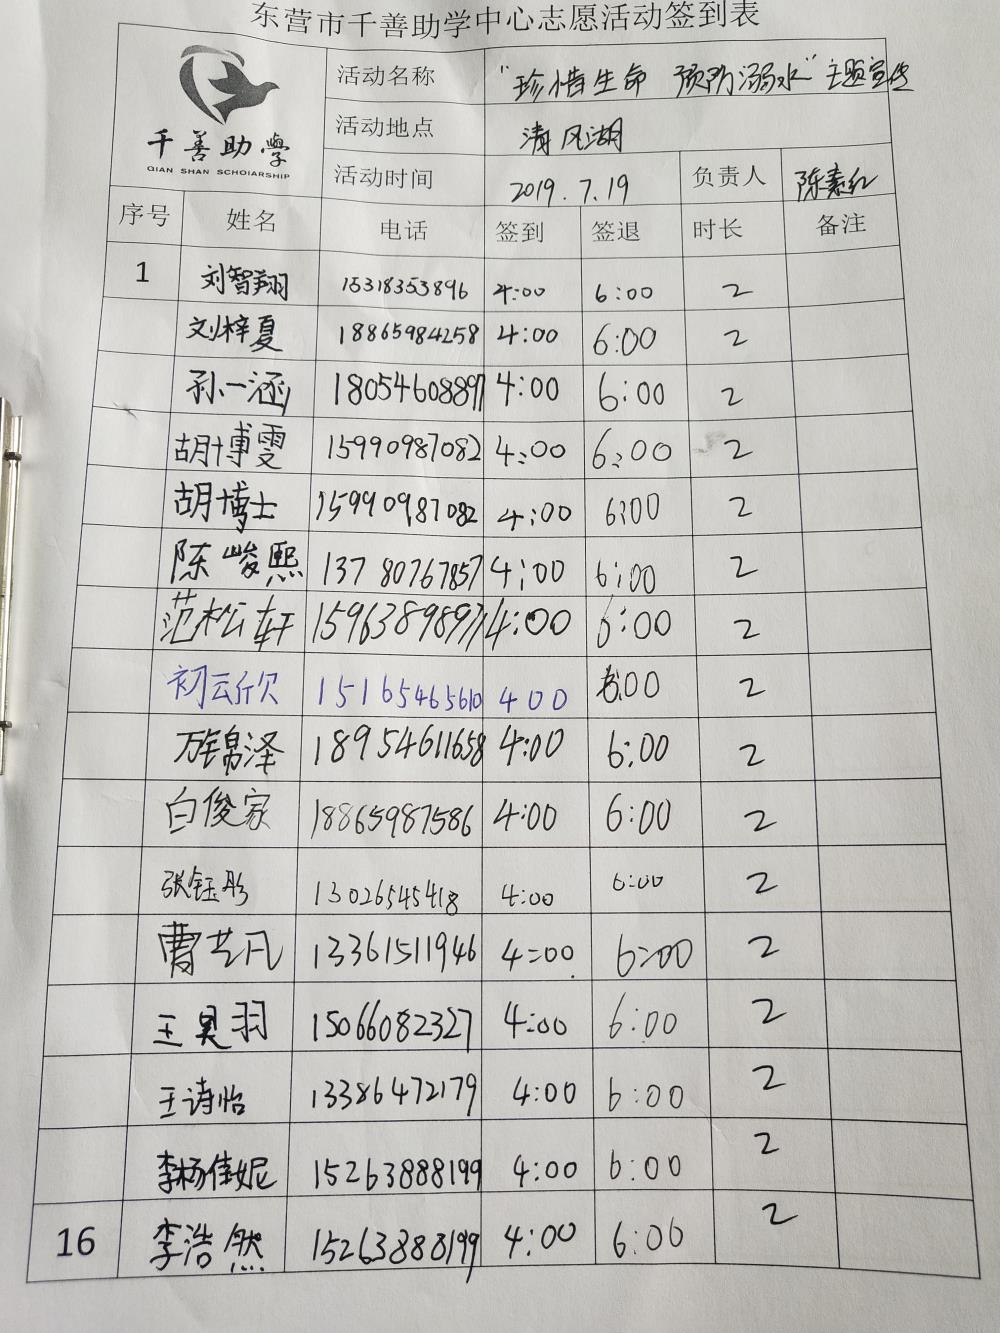 东营市千善助学中心志愿活动签到表
千善助学
QIAN SHAN SCHOIARSHIP
活动名称 “珍惜生命 预防溺水”主题宣传
活动地点 清风湖
活动时间 2019.7.19 负责人 陈素红
序号 姓名 电话 签到 签退 时长 备注
1 刘智翔 15318353896 4:00 6:00 2
刘梓夏 18865984258 4:00 6:00 2
孙一涵 18054608897 4:00 6:00 2
胡博雯 15990987082 4:00 6:00 2
胡博士 15990987082 4:00 6:00 2
陈峻熙 13780767857 4:00 6:00 2
范松轩 15963898971 4:00 6:00 2
初云欣 15165465610 400 6:00 2
万锦泽 18954611658 4:00 6:00 2
白俊家 18865987586 4:00 6:00 2
张钰彤 13026545418 4:00 6:00 2
曹艺凡 13361511946 4:00 6:00 2
王昊羽 15066082327 4:00 6:00 2
王诗怡 13386472179 4:00 6:00 2
李杨佳妮 15263888199 4:00 6:00 2
16 李浩然 15263888199 4:00 6:00 2